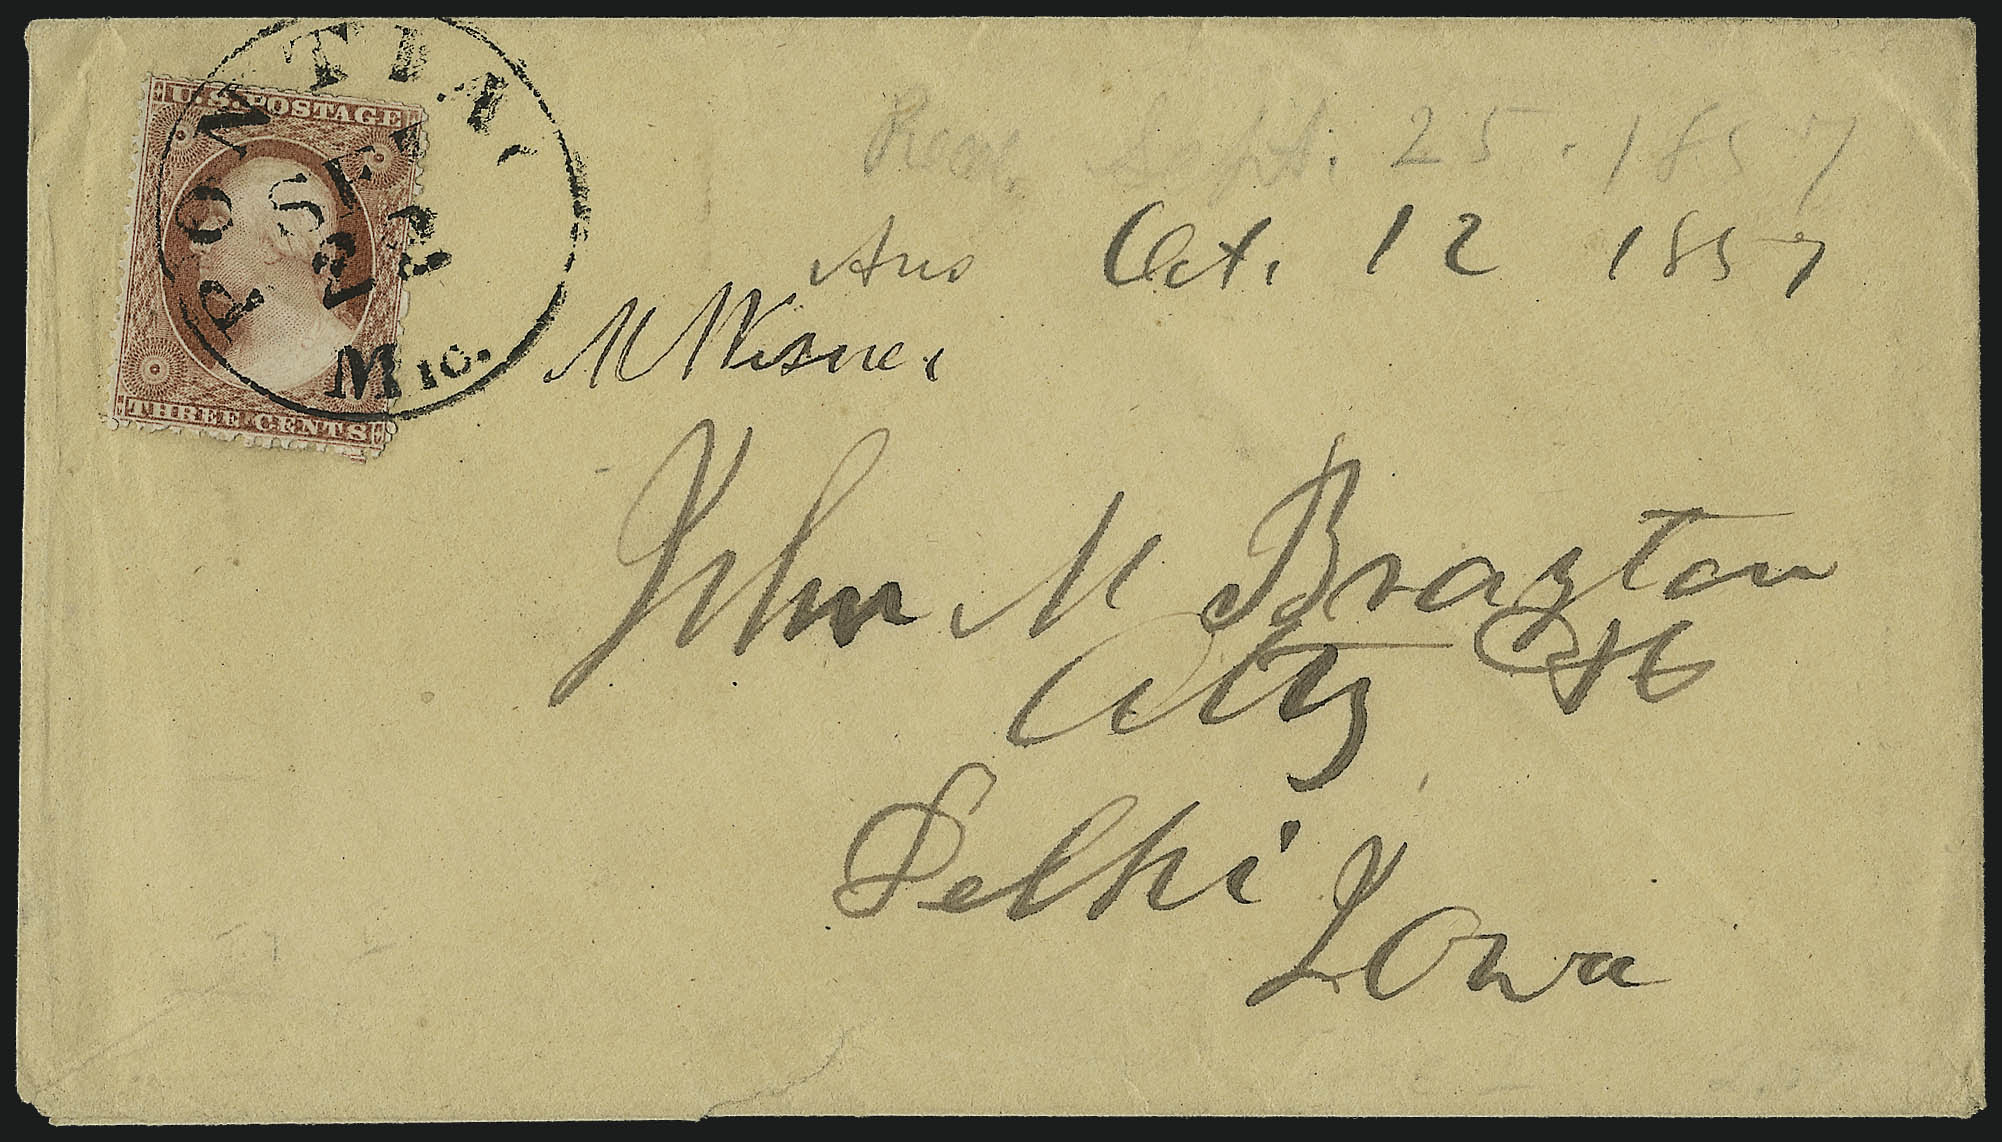 U.S. POSTAGE
THREE CENTS
PONTIAC
SEP
22
MIC.
Sept. 25. 1857
Ans Oct. 12 1857
M Wisner
John M Braxton
Atty
Delhi
Iowa